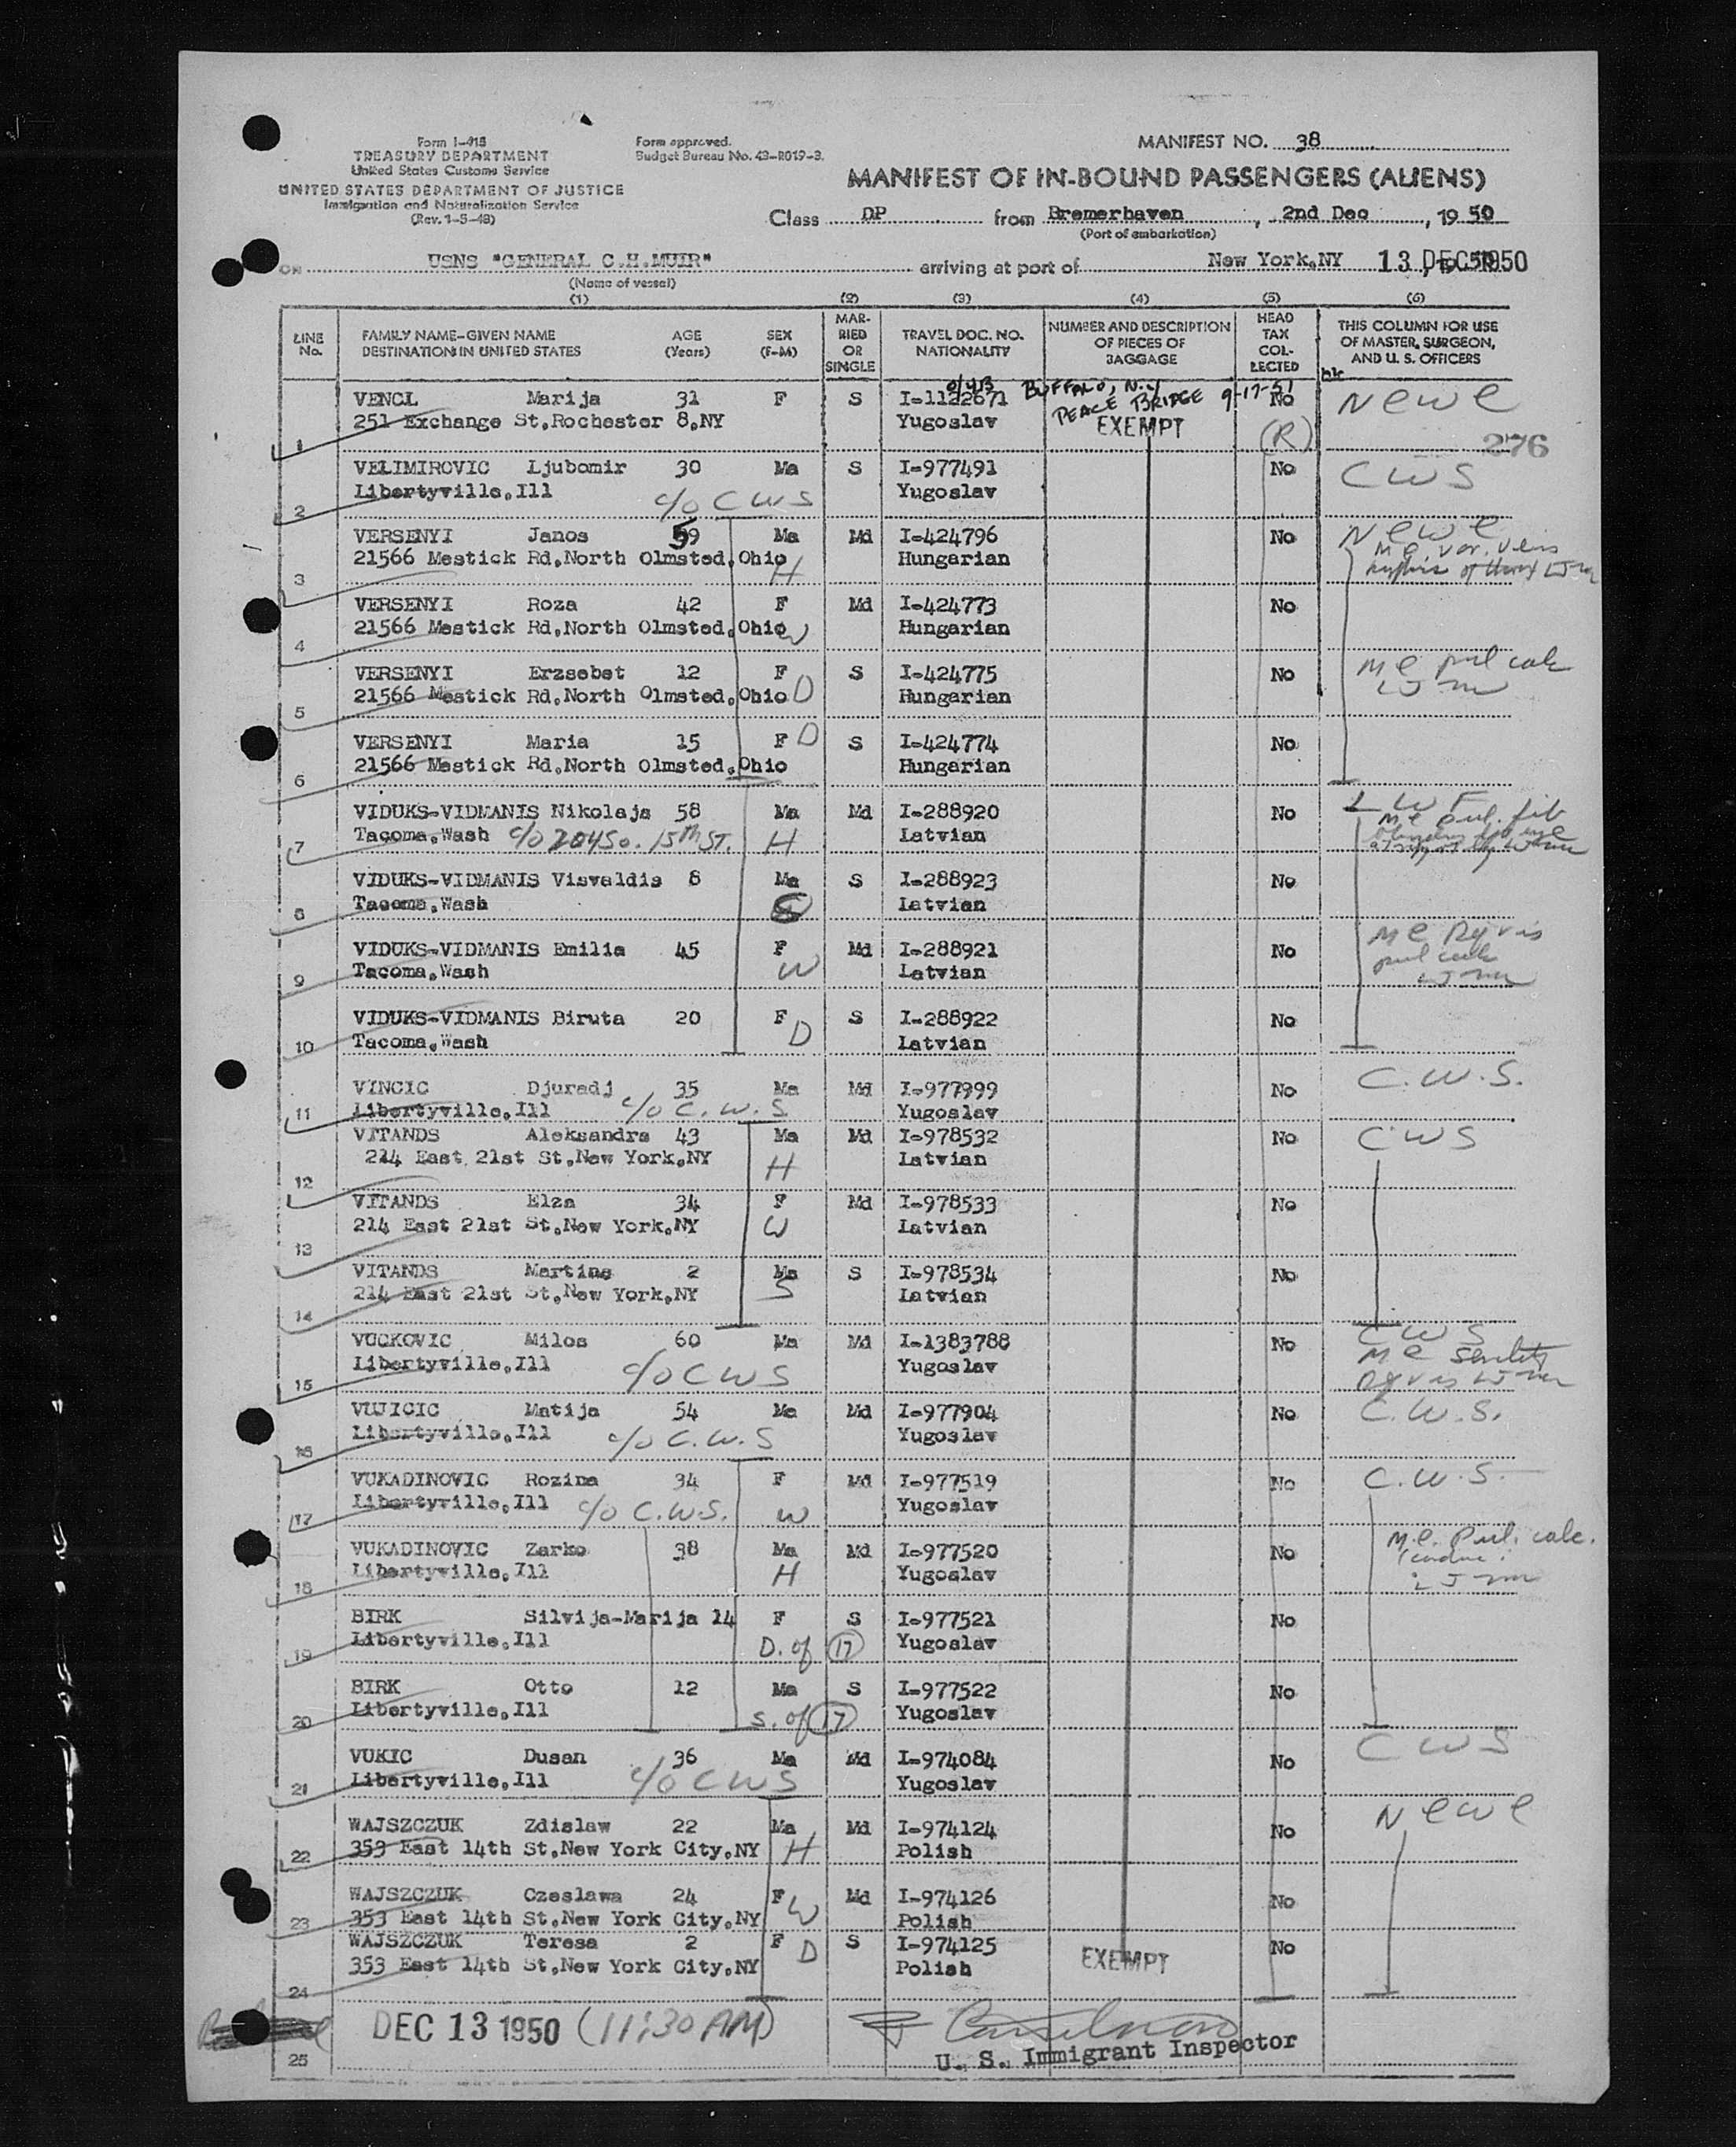 Form I-415
TREASURY DEPARTMENT
United States Customs Service
UNITED STATES DEPARTMENT OF JUSTICE
Immigration and Naturalization Service
(Rev. 1-5-48)
Form approved.
Budget Bureau No. 43-R019-3.
MANIFEST NO. 38
MANIFEST OF IN-BOUND PASSENGERS (ALIENS)
Class DP from Bremerhaven, 2nd Dec, 19 50
(Port of embarkation)
on USNS "GENERAL C.H.MUIR" arriving at port of New York,NY 13 DEC 1950
(Name of vessel)
(1) (2) (3) (4) (5) (6)
LINE No.
FAMILY NAME-GIVEN NAME
DESTINATION IN UNITED STATES
AGE (Years)
SEX (F-M)
MARRIED OR SINGLE
TRAVEL DOC. NO. NATIONALITY
NUMBER AND DESCRIPTION OF PIECES OF BAGGAGE
HEAD TAX COLLECTED
THIS COLUMN FOR USE OF MASTER, SURGEON, AND U. S. OFFICERS
BUFFALO, N.Y
PEACE BRIDGE 9-17-51
VENCL Marija 31 F S I-1122671 No NeWe
1 251 Exchange St,Rochester 8,NY Yugoslav EXEMPT (R)
276
VELIMIROVIC Ljubomir 30 Ma S I-977491 No CWS
2 Libertyville,Ill c/o CWS Yugoslav
VERSENYI Janos 59 Ma Md I-424796 No NeWe
3 21566 Mestick Rd,North Olmsted,Ohio H Hungarian
VERSENYI Roza 42 F Md I-424773 No
4 21566 Mestick Rd,North Olmsted,Ohio W Hungarian
VERSENYI Erzsebet 12 F S I-424775 No
5 21566 Mestick Rd,North Olmsted,Ohio D Hungarian
VERSENYI Maria 15 F D S I-424774 No
6 21566 Mestick Rd,North Olmsted,Ohio Hungarian
VIDUKS-VIDMANIS Nikolajs 58 Ma Md I-288920 No LWF
7 Tacoma,Wash c/o So. 15th ST. H Latvian
VIDUKS-VIDMANIS Visvaldis 8 Ma S I-288923 No
8 Tacoma,Wash S Latvian
VIDUKS-VIDMANIS Emilia 45 F Md I-288921 No
9 Tacoma,Wash W Latvian
VIDUKS-VIDMANIS Biruta 20 F S I-288922 No
10 Tacoma,Wash D Latvian
VINCIC Djuradj 35 Ma Md I-977999 No C.W.S.
11 Libertyville,Ill c/o C.W.S Yugoslav
VITANDS Aleksandrs 43 Ma Md I-978532 No CWS
12 214 East 21st St,New York,NY H Latvian
VITANDS Elza 34 F Md I-978533 No
13 214 East 21st St,New York,NY W Latvian
VITANDS Martins 2 Ma S I-978534 No
14 214 East 21st St,New York,NY S Latvian
VUCKOVIC Milos 60 Ma Md I-1383788 No CWS
15 Libertyville,Ill c/o CWS Yugoslav
VUJICIC Matija 54 Ma Md I-977904 No C.W.S.
16 Libertyville,Ill c/o C.W.S Yugoslav
VUKADINOVIC Rozina 34 F Md I-977519 No C.W.S.
17 Libertyville,Ill c/o C.W.S. W Yugoslav
VUKADINOVIC Zarko 38 Ma Md I-977520 No M.e. Pul. calc.
18 Libertyville,Ill H Yugoslav
BIRK Silvija-Marija 14 F S I-977521 No
19 Libertyville,Ill D. of 17 Yugoslav
BIRK Otto 12 Ma S I-977522 No
20 Libertyville,Ill S. of 17 Yugoslav
VUKIC Dusan 36 Ma Md I-974084 No CWS
21 Libertyville,Ill c/o CWS Yugoslav
WAJSZCZUK Zdislaw 22 Ma Md I-974124 No NeWe
22 353 East 14th St,New York City,NY H Polish
WAJSZCZUK Czeslawa 24 F Md I-974126 No
23 353 East 14th St,New York City,NY W Polish
WAJSZCZUK Teresa 2 F D S I-974125 EXEMPT No
24 353 East 14th St,New York City,NY Polish
DEC 13 1950 (11:30 AM)
25 U. S. Immigrant Inspector